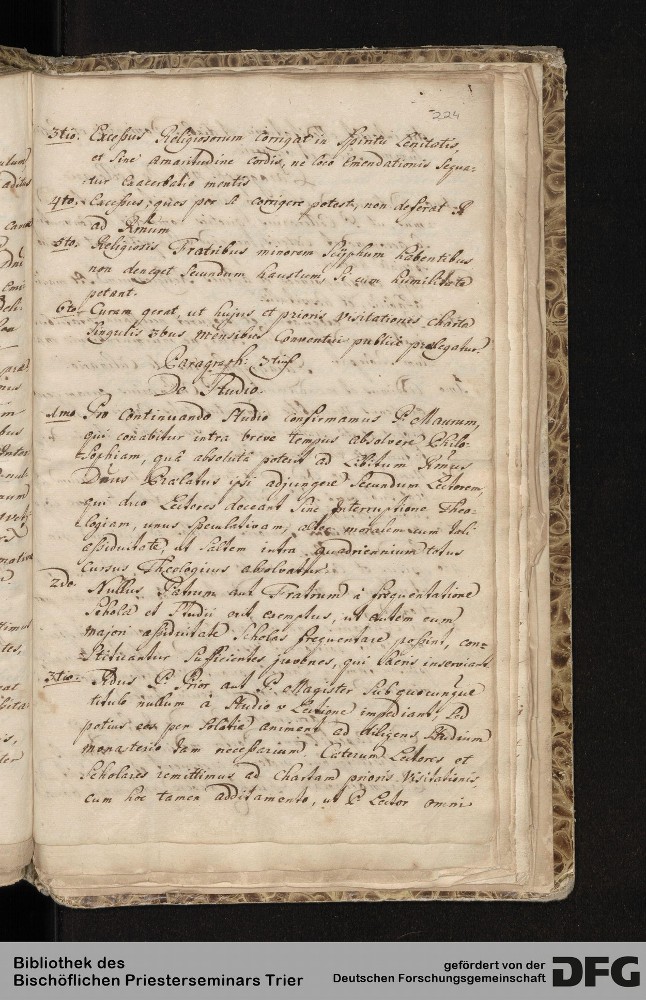 224
3tio. Excessus Religiosorum corrigat in spiritu Lenitatis,
et sine amaritudine cordis, ne loco Emendationis sequa-
tur Exacerbatio mentis
4to. Excessus, quos per se corrigere potest, non deferat
ad Rmum
5to. Religiosis Fratribus minorem Scyphum habentibus
non deneget secundum haustum, si cum humilitate
petant.
6to Curam gerat, ut hujus et prioris visitationis charta
singulis 3bus mensibus Conventui publicè prælegatur.
Paragraph: 3tius
De Studio.
1mo Pro continuando studio confirmamus P. Maurum,
qui conabitur intra breve tempus absolvere Philo-
sophiam, quâ absolutâ poterit ad Libitum Rmus
Dnus Prælatus ipsi adjungere secundum Lectorem,
qui duo Lectores doceant sine interruptione Theo-
logiam, unus speculativam, alter moralem cum tali
assiduitate, ut saltem intra quadriennium totus
cursus Theologicus absolvatur.
2do. Nullus Patrum aut Fratrum à frequentatione
Scholæ et Studii sit exemptus, ut autem cum
majori assiduitate Scholas frequentare possint, con-
stituantur sufficientes juvenes, qui Sacris inserviant
3tio. Rdus P. Prior aut P. Magister sub quocunque
titulo nullum à Studio Lectione impediant, sed
potius eos per solatia animent ad diligens studium
monasterio tam necessarium. Cæterum Lectores et
Scholares remittimus ad Chartam prioris Visitationis,
cum hoc tamen additamento, ut P. Lector omni
Bibliothek des
Bischöflichen Priesterseminars Trier
gefördert von der
Deutschen Forschungsgemeinschaft
DFG